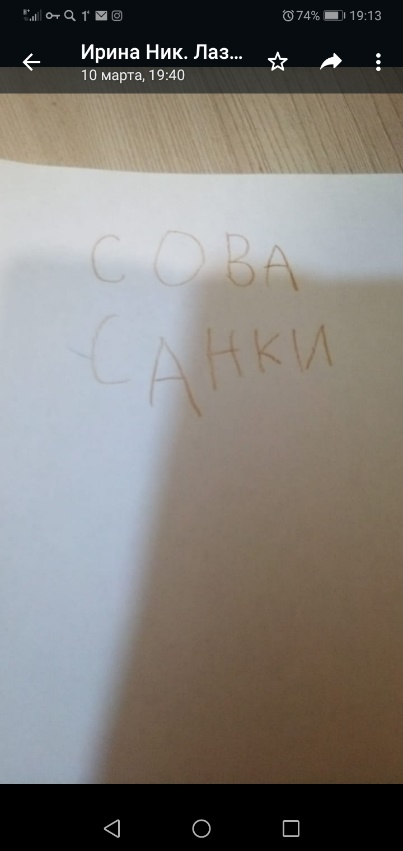 74% 19:13
Ирина Ник. Лаз...
10 марта, 19:40
СОВА
САНКИ